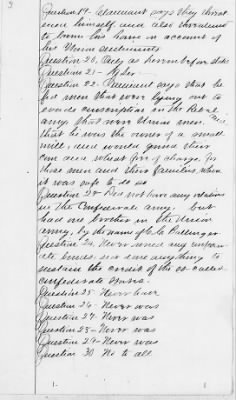 Question 19. Claimant says they threat
ened himself and also threatened
to burn his house on account of
his Union sentiments
Question 20. Only as herein before stated
Questions 21-
Question 22. Claimant says that he
fed men that were lying out to
evade conscription in the Rebel
army that were Union men.
that he was the owner of a small
mill and would grind their
corn and wheat free of charge for
those men and their families when
it was safe to do so
Question 23. Did not have any relation
in the Confederate army. but
had one brother in the Union
army, by the name of Ballinger
Question 24. Never owned any confeder
ate bonds nor done anything to
sustain the credit of the so-called
Confederate States.
Question 25- Never have
Question 26. Never was
Question 27. Never was
Question 28- Never was
Question 29- Never was
Question 30 No to all